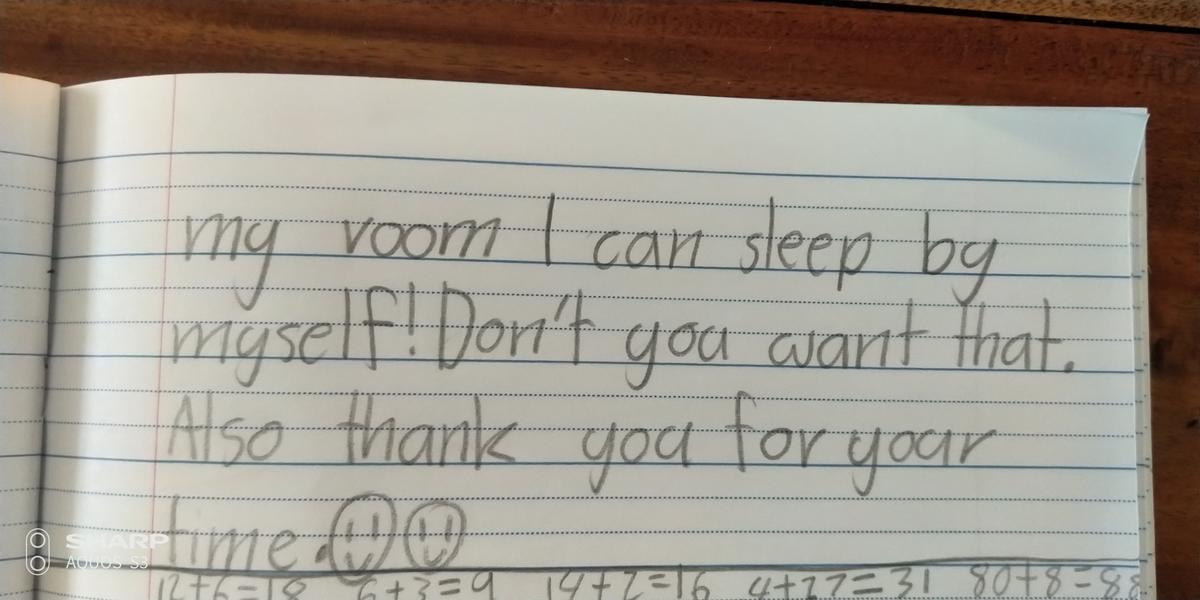 my room I can sleep by
myself! Don't you want that.
Also thank you for your
time.
12+6=18 6+3=9 14+2=16 4+27=31 80+8=88
SHARP
AQUOS S3